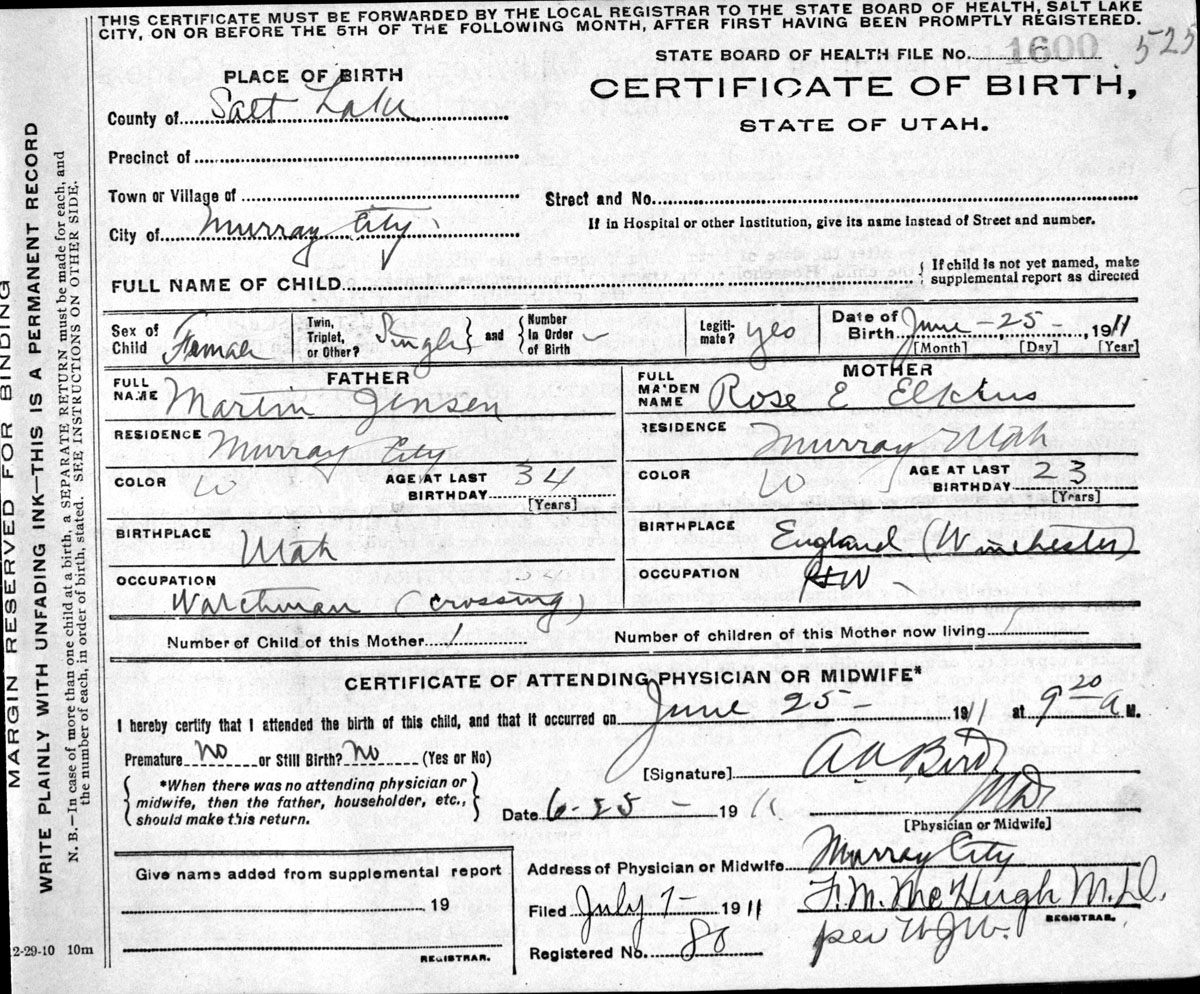 THIS CERTIFICATE MUST BE FORWARDED BY THE LOCAL REGISTRAR TO THE STATE BOARD OF HEALTH, SALT LAKE
CITY, ON OR BEFORE THE 5TH OF THE FOLLOWING MONTH, AFTER FIRST HAVING BEEN PROMPTLY REGISTERED.
STATE BOARD OF HEALTH FILE No. 1600 525
PLACE OF BIRTH
CERTIFICATE OF BIRTH,
STATE OF UTAH.
County of Salt Lake
Precinct of
Town or Village of
Street and No.
City of Murray City
If in Hospital or other Institution, give its name instead of Street and number.
FULL NAME OF CHILD
If child is not yet named, make
supplemental report as directed
Sex of Child Female
Twin, Triplet, or Other? Single and Number in Order of Birth -
Legiti-mate? yes
Date of Birth June - 25 - , 1911
[Month] [Day] [Year]
FATHER
FULL NAME Martin Jensen
RESIDENCE Murray City
COLOR W AGE AT LAST BIRTHDAY 34
[Years]
BIRTHPLACE Utah
OCCUPATION
Watchman (crossing)
MOTHER
FULL MAIDEN NAME Rose E Elkins
RESIDENCE Murray Utah
COLOR W AGE AT LAST BIRTHDAY 23
[Years]
BIRTHPLACE
England (Winchester)
OCCUPATION HW
Number of Child of this Mother 1 Number of children of this Mother now living 1
CERTIFICATE OF ATTENDING PHYSICIAN OR MIDWIFE*
I hereby certify that I attended the birth of this child, and that it occurred on June 25 - 1911 at 9 20 a M.
Premature no or Still Birth? no (Yes or No)
[Signature] A A Bird
MD
[Physician or Midwife]
*When there was no attending physician or
midwife, then the father, householder, etc.,
should make this return.
Date 6-25- 1911
Give name added from supplemental report
19
REGISTRAR.
Address of Physician or Midwife Murray City
Filed July 7 - 1911 F. M. McHugh M.D.
REGISTRAR.
per W.J.W.
Registered No. 80
2-29-10 10m
MARGIN RESERVED FOR BINDING
WRITE PLAINLY WITH UNFADING INK—THIS IS A PERMANENT RECORD
N. B.—In case of more than one child at a birth, a SEPARATE RETURN must be made for each, and
the number of each, in order of birth, stated. SEE INSTRUCTIONS ON OTHER SIDE.